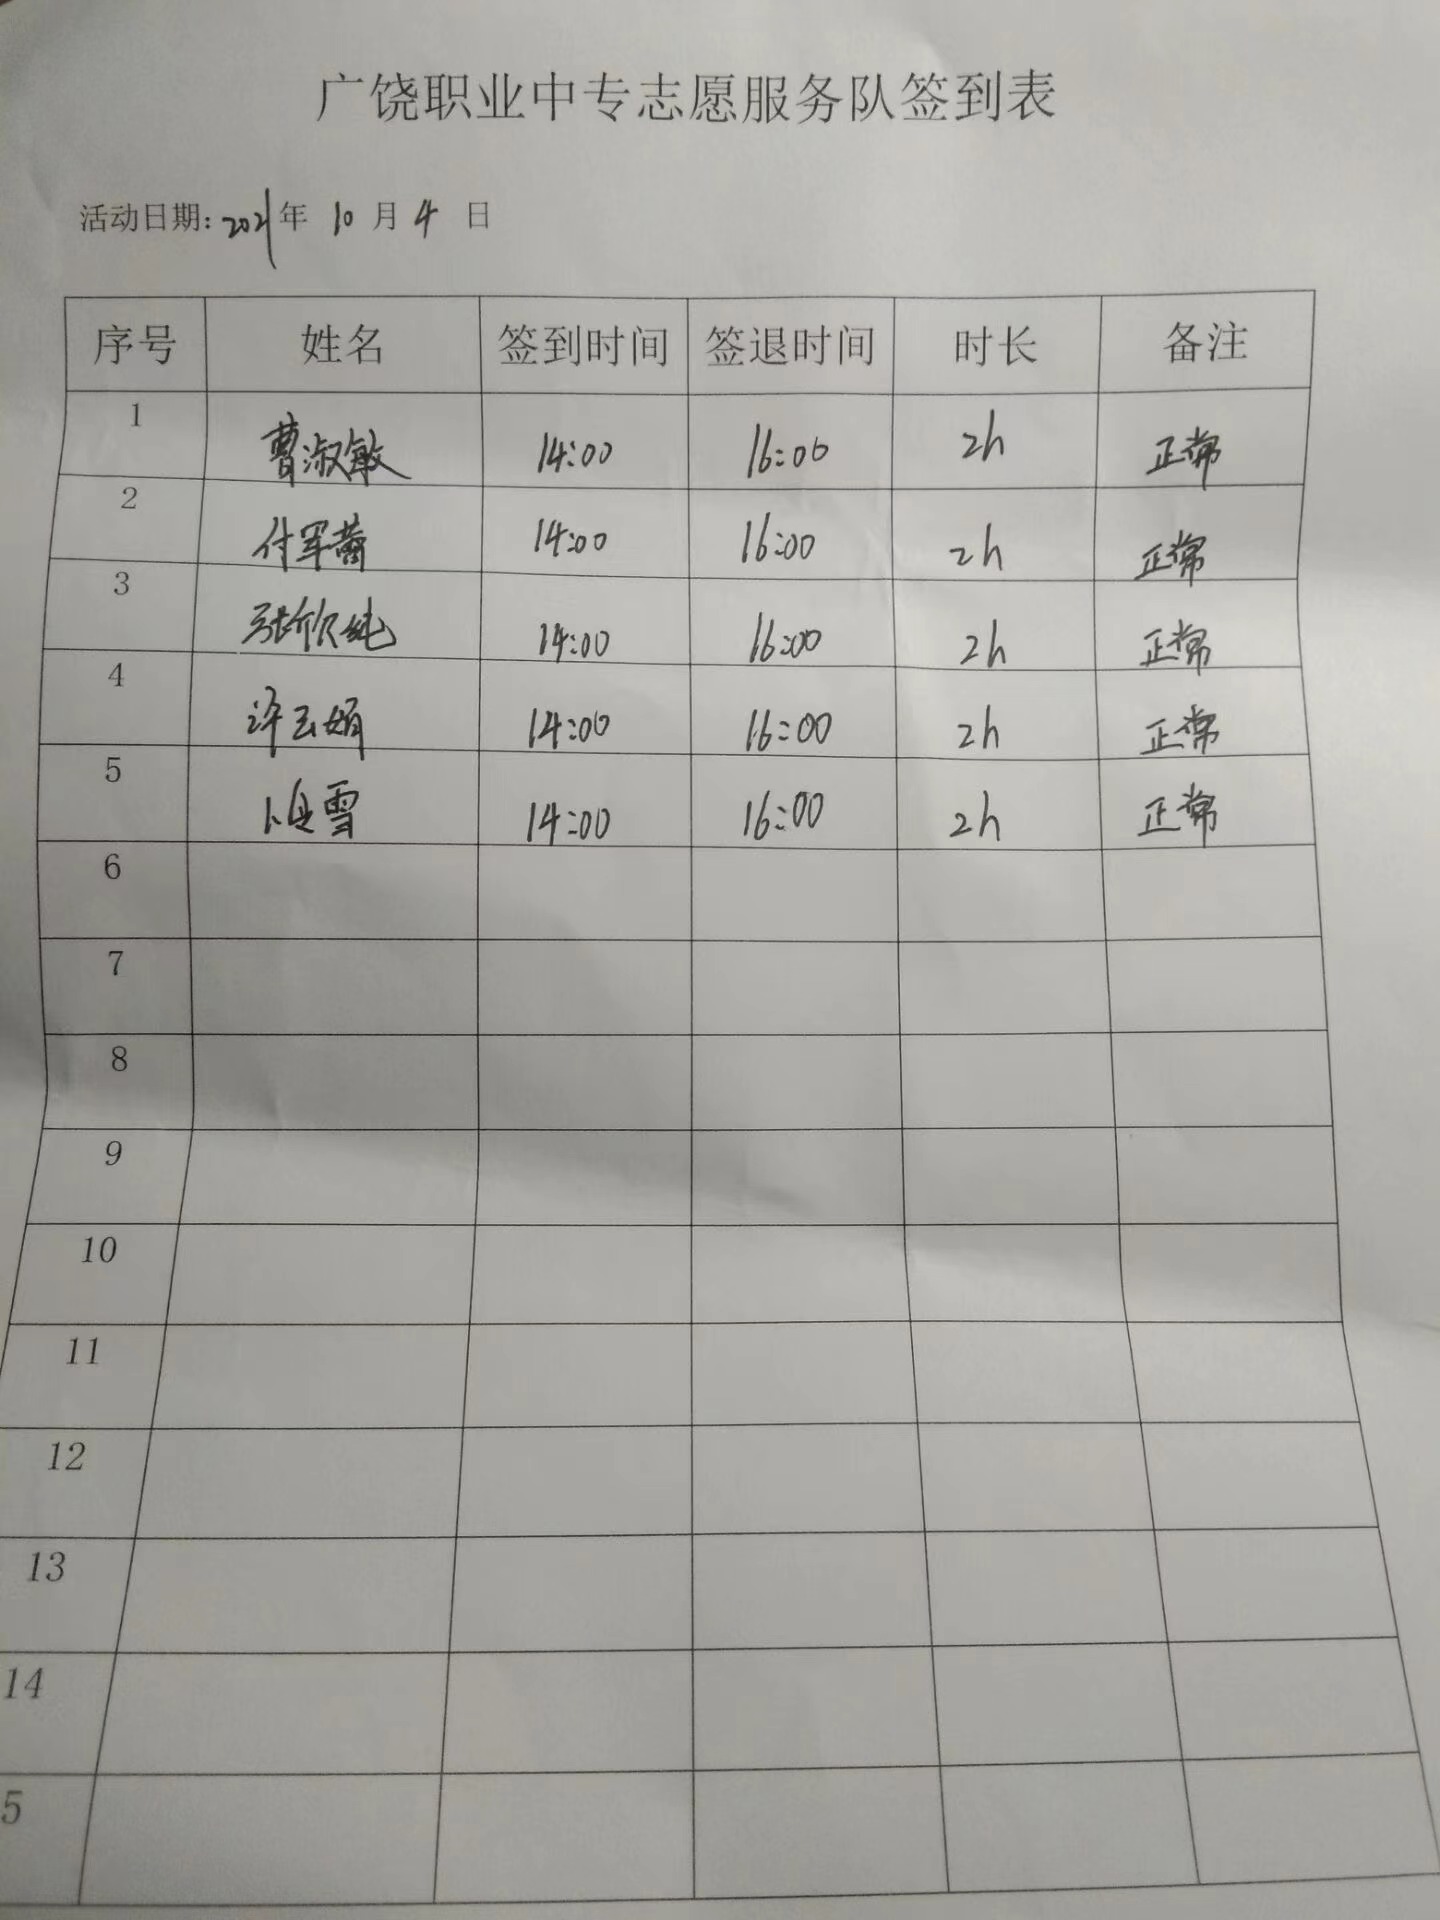 广饶职业中专志愿服务队签到表
活动日期: 2021年 10 月 4 日
序号 姓名 签到时间 签退时间 时长 备注
1 曹淑敏 14:00 16:00 2h 正常
2 付军蕾 14:00 16:00 2h 正常
3 张欣纯 14:00 16:00 2h 正常
4 许云娟 14:00 16:00 2h 正常
5 雪 14:00 16:00 2h 正常
6
7
8
9
10
11
12
13
14
5